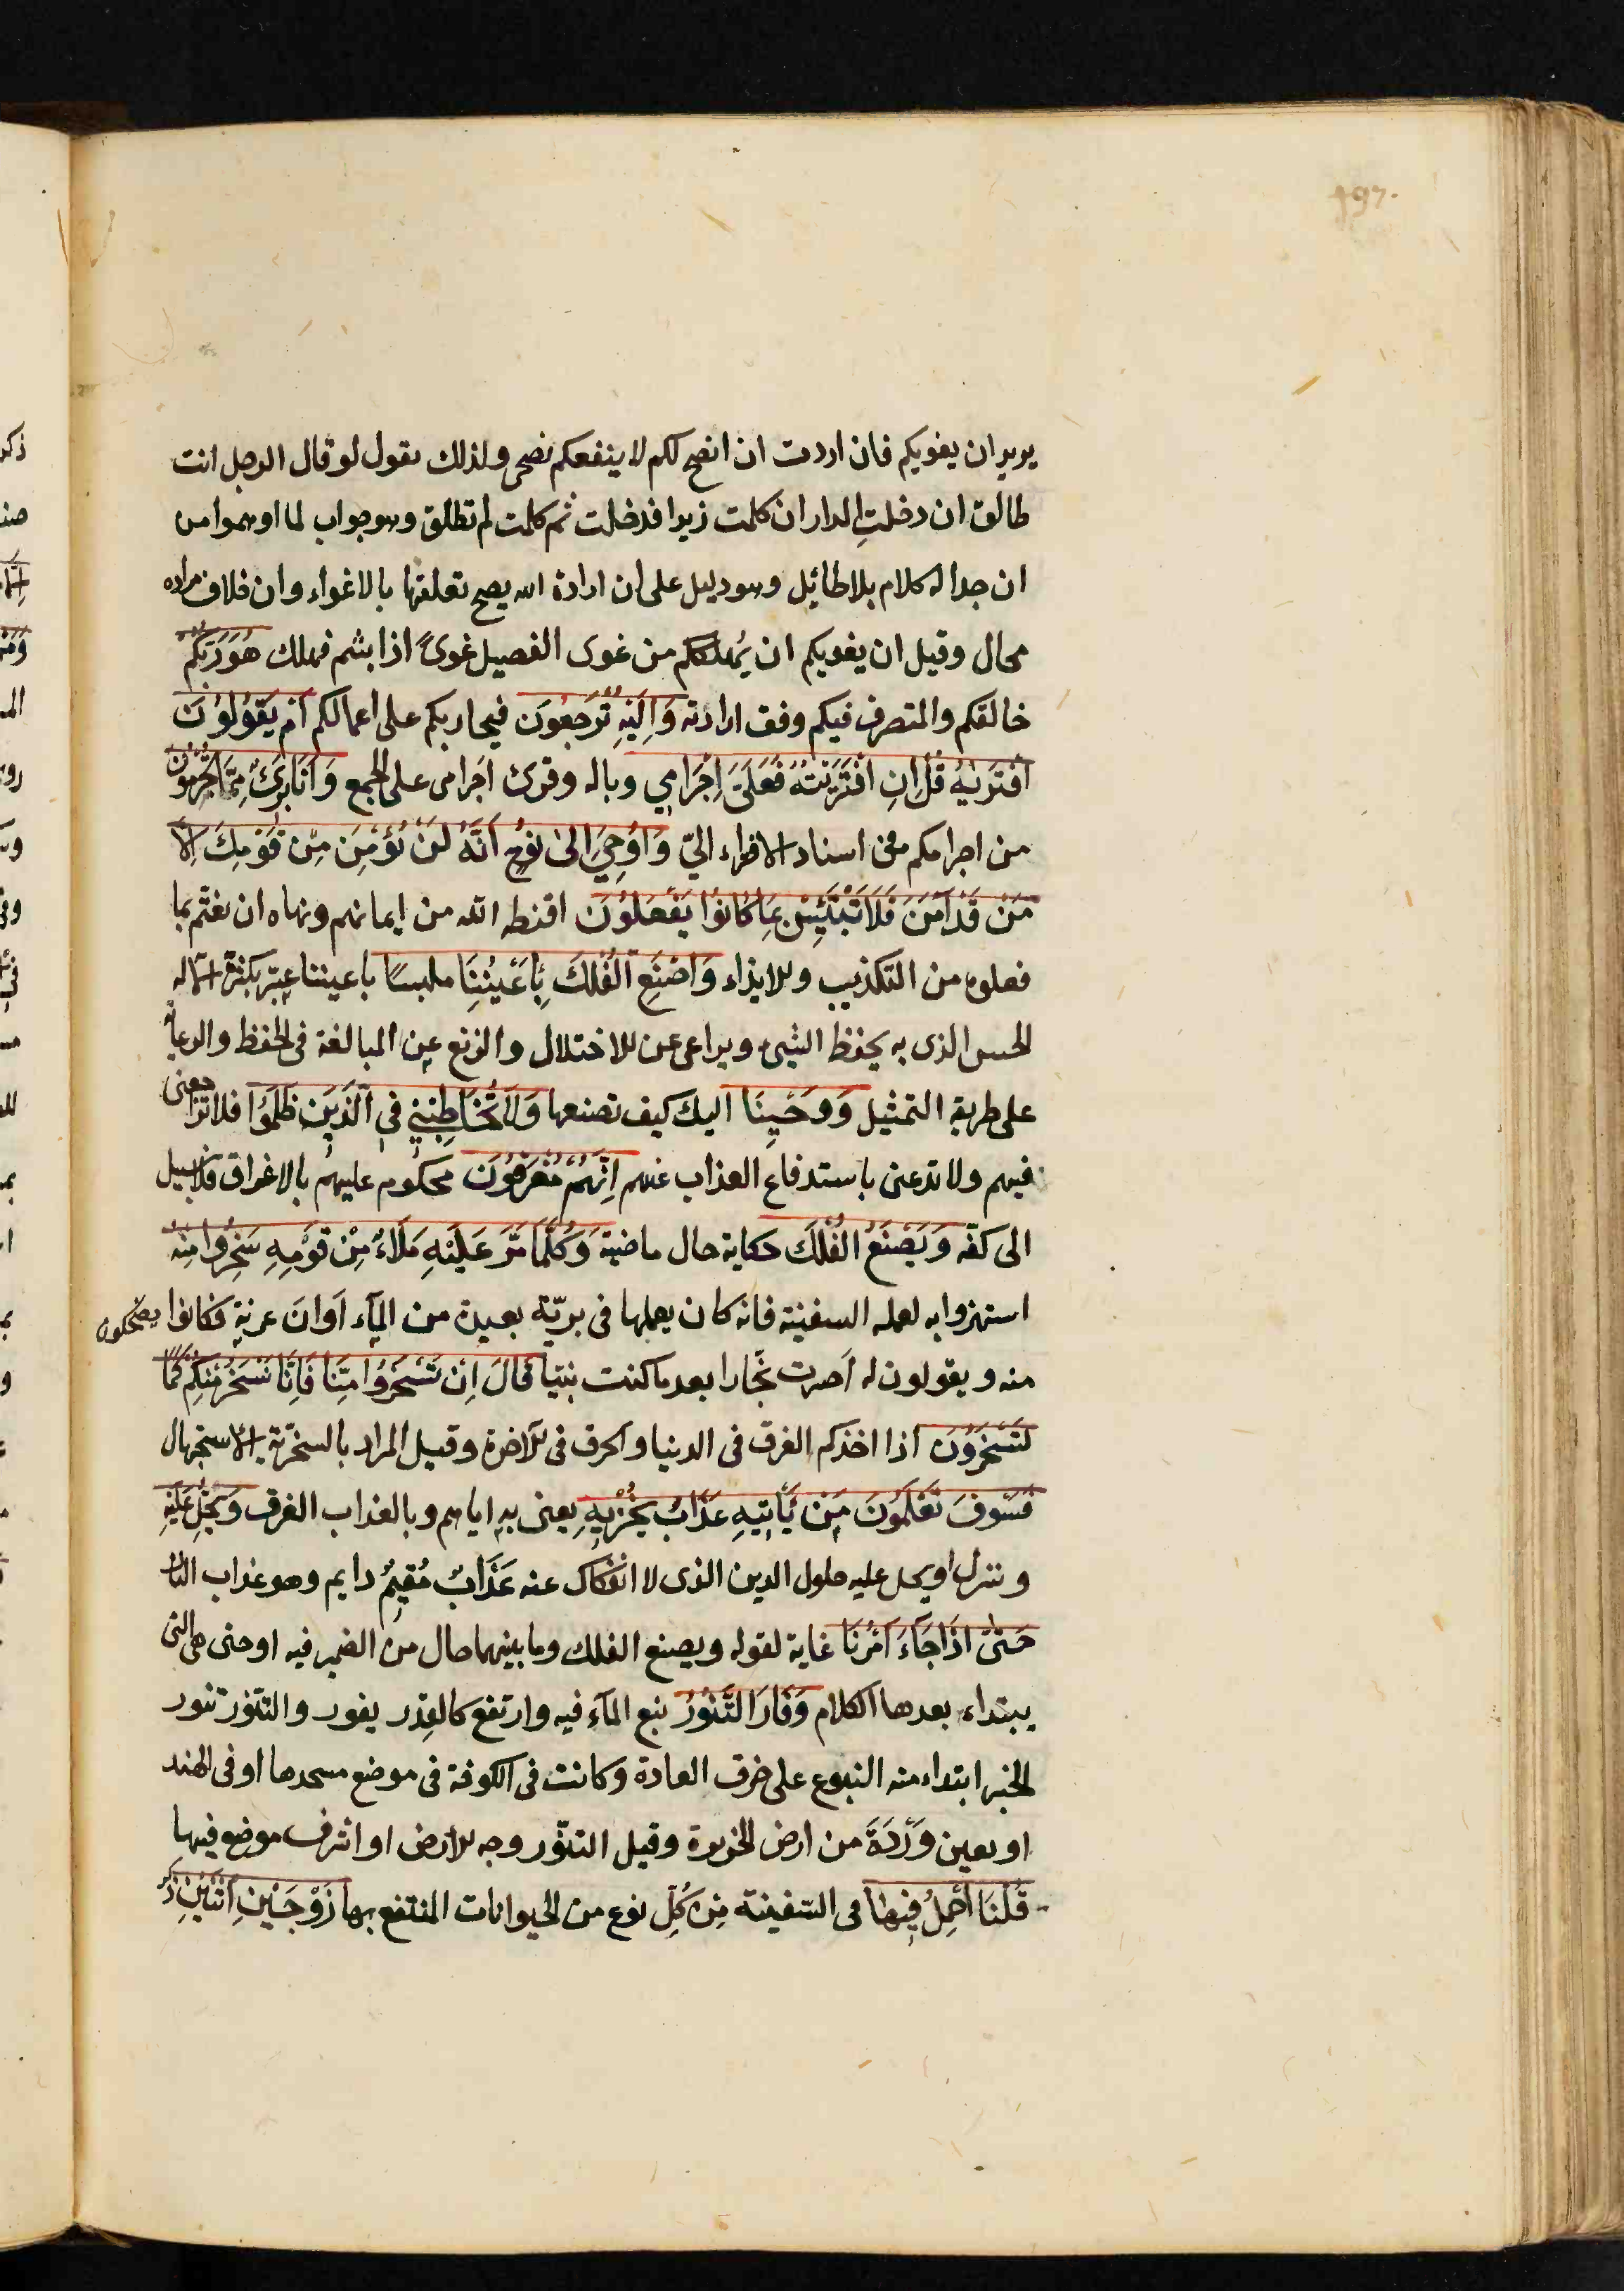 يريد ان يغويكم فان اردت ان انصح لكم لا ينفعكم نصحى ولذلك نقول لو قال الرجل انت
طالق ان دخلتِ الدار ان كلمت زيدا فدخلت ثم كلمت لم تطلق وهو جواب لما اوهموا من
ان جداله كلام بلا طائل وهو دليل على ان ارادة الله يصح تعلقها بالاغواء وان خلاف مراده
محال وقيل ان يغويكم ان يُهلككم من غوى الفصيل غوىً اذا بشم فهلك هُوَ رَبُّكُمْ
خالقكم والمتصرف فيكم وفق ارادته وَاِلَيْهِ تُرْجَعُونَ فيجازيكم على اعمالكم اَمْ يَقُولُونَ
افْتَرَيٰهُ قُلْ اِنِ افْتَرَيْتُهُ فَعَلَيَّ اِجْرَامِي وباله وقرئ اَجرامى على الجمع وَاَنَا بَرِئٌ مِمَّا تُجْرِمُونَ
من اجرامكم فى اسناد الافتراء اليّ وَاُوحِيَ اِلىٰ نُوحٍ اَنَّهُ لَنْ يُؤْمِنَ مِنْ قَوْمِكَ اِلَّا
مَنْ قَدْ اٰمَنَ فَلَا تَبْتَئِسْ بِمَا كَانُوا يَفْعَلُونَ اقنطه الله من ايمانهم ونهاه ان يغتمّ بما
فعلوه من التكذيب والايذاء وَاصْنَعِ الْفُلْكَ بِاَعْيُنِنَا ملبسًا باعيننا عبّر بكثرة آلة
الحس الذى به يحفظ الشىء ويراعى عن الاختلال والزيغ عن المبالغة فى الحفظ والرعاية
على طريقة التمثيل وَوَحْيِنَا اليك كيف تصنعها وَلَا تُخَاطِبْنِي فِي الَّذِينَ ظَلَمُوا فلا تراجعنى
فيهم ولا تدعنى باستدفاع العذاب عنهم اِنَّهُمْ مُغْرَقُونَ محكوم عليهم بالاغراق فلا سبيل
الى كفّه وَيَصْنَعُ الْفُلْكَ حكاية حال ماضية وَكُلَّمَا مَرَّ عَلَيْهِ مَلَاءٌ مِنْ قَوْمِهِ سَخِرُوا مِنْهُ
استهزوا به لعمله السفينة فانه كان يعملها فى بريّة بعيدة من المآء اَوانَ عزته فكانوا يضحكون
منه ويقولون له اَصرت نجّارا بعد ما كنت نبيّا قَالَ اِنْ تَسْخَرُوا مِنَّا فَاِنَّا نَسْخَرُ مِنْكُمْ كَمَا
تَسْخَرُونَ اذا اخذكم الغرق فى الدنيا والحرق فى الآخرة وقيل المراد بالسخريّة الاستجهال
فَسَوْفَ تَعْلَمُونَ مَنْ يَأْتِيهِ عَذَابٌ يُخْزِيهِ يعنى به اياهم وبالعذاب الغرق وَيَحِلُّ عَلَيْهِ
وينزل او يحل عليه حلول الدين الذى لا انفكاك عنه عَذَابٌ مُقِيمٌ دايم وهو عذاب النار
حَتّىٰ اِذَا جَآءَ اَمْرُنَا غاية لقوله ويصنع الفلك وما بينهما حال من الضمير فيه او حتى هى التى
يبتداء بعدها الكلام وَفَارَ التَّنُّورُ نبع المآء فيه وارتفع كالقِدر يفور والتنّور تنور
الخبز ابتداء منه النبوع على خرق العادة وكانت فى الكوفة فى موضع مسجدها او فى الهند
او بعين وَرْدَةَ من ارض الجزيرة وقيل التنّور وجه الارض او اشرف موضع فيها
قُلْنَا احْمِلْ فِيهَا فى السّفينة مِنْ كُلٍّ نوع من الحيوانات المنتفع بها زَوْجَيْنِ اثْنَيْنِ ذكر